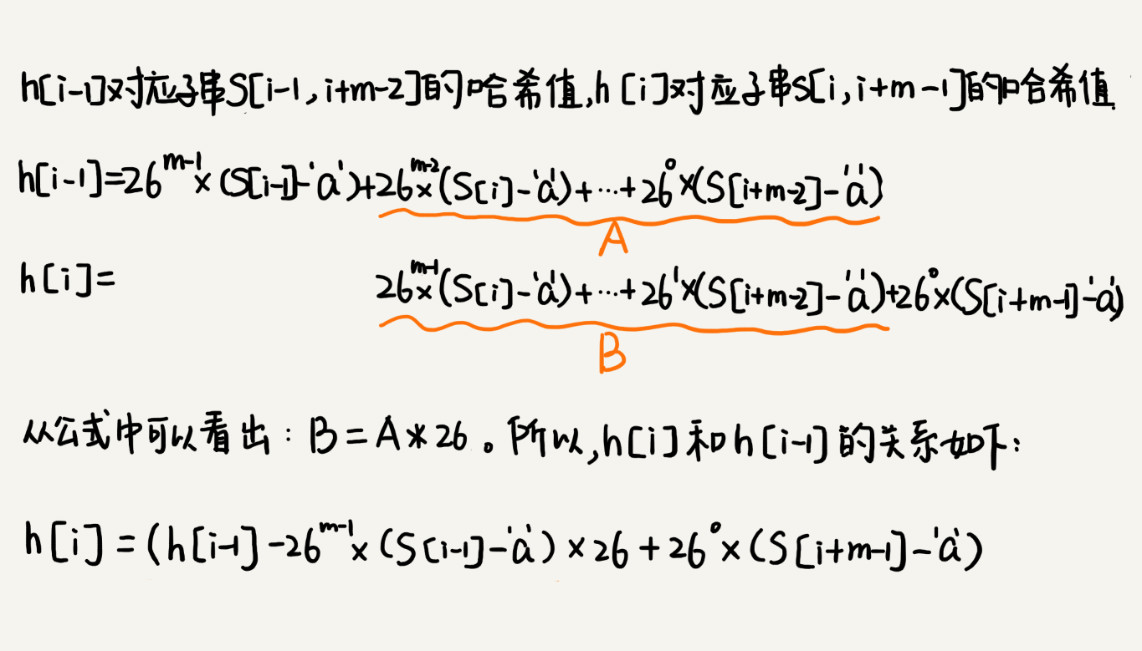 h[i-1]对应子串S[i-1,i+m-2]的哈希值,h[i]对应子串S[i,i+m-1]的哈希值.
h[i-1]=26^{m-1}×(S[i-1]-'a')+26^{m-2}×(S[i]-'a')+…+26^0×(S[i+m-2]-'a')
A
h[i]= 26^{m-1}×(S[i]-'a')+…+26^1×(S[i+m-2]-'a')+26^0×(S[i+m-1]-'a')
B
从公式中可以看出:B=A*26。所以,h[i]和h[i-1]的关系如下:
h[i]=(h[i-1]-26^{m-1}×(S[i-1]-'a')×26+26^0×(S[i+m-1]-'a')